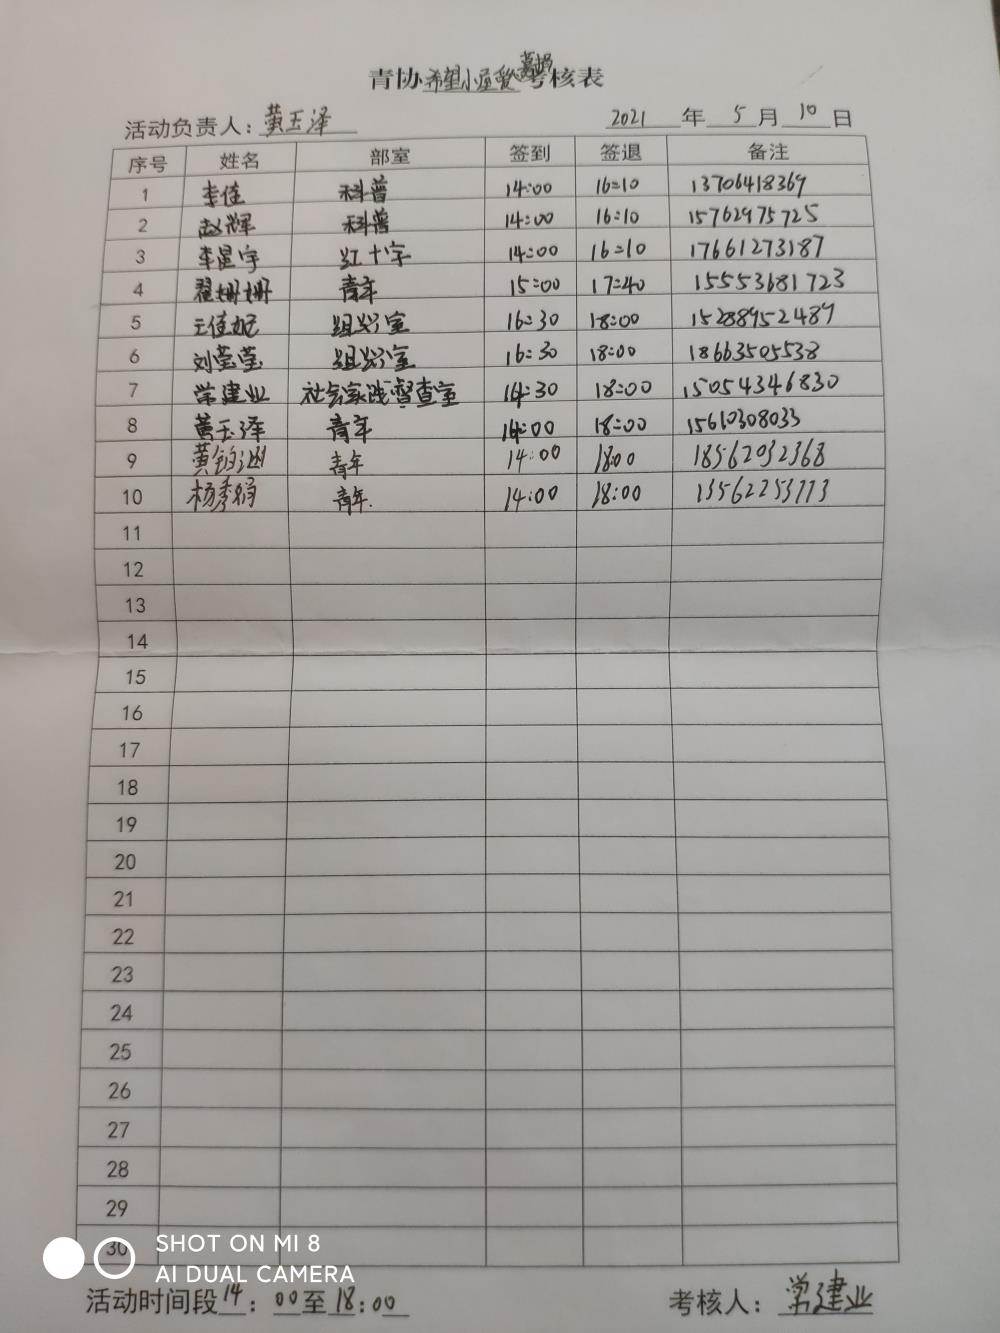 青协希望小屋爱心募捐考核表
活动负责人：黄玉泽 2021 年 5 月 10 日
序号 姓名 部室 签到 签退 备注
1 李佳 科普 14:00 16:10 13706418369
2 赵辉 科普 14:00 16:10 15762975725
3 李星宇 红十字 14:00 16:10 17661273187
4 翟姗姗 青年 15:00 17:40 15553681723
5 王佳妮 组织室 16:30 18:00 15288952489
6 刘莹莹 组织室 16:30 18:00 18663505538
7 常建业 社会实践督查室 14:30 18:00 15054346830
8 黄玉泽 青年 14:00 18:00 15610308033
9 黄 青年 14:00 18:00 18562032368
10 杨秀娟 青年. 14:00 18:00 13562253773
11
12
13
14
15
16
17
18
19
20
21
22
23
24
25
26
27
28
29
30
SHOT ON MI 8
AI DUAL CAMERA
活动时间段14：00至18：00 考核人：常建业